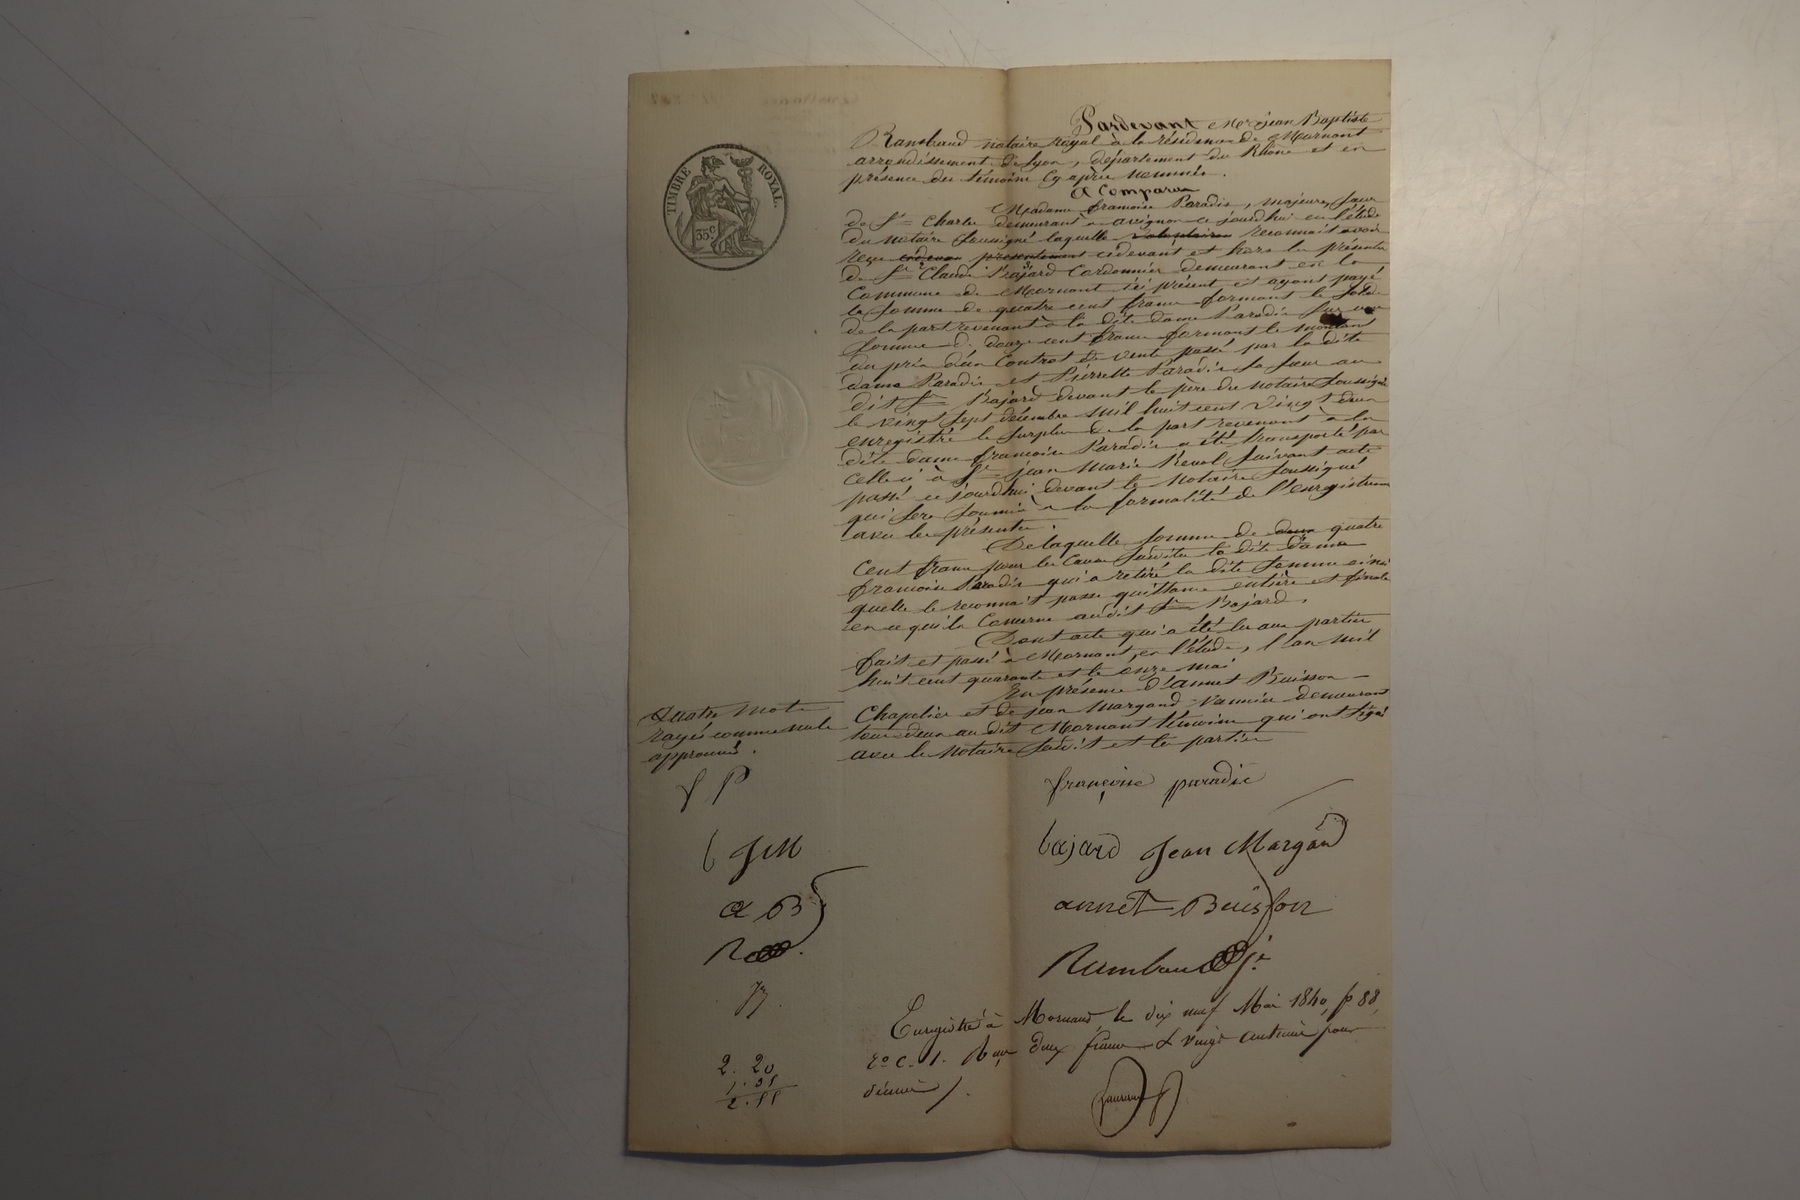 TIMBRE ROYAL.
35c
Pardevant Me jean Baptiste
Rambaud notaire Royal à la résidence de Mornant
arrondissement de Lyon, département du Rhône et en
présence des témoins cy après nommés.
a Comparu
Madame francoise Paradis, majeure, Sœur
de St Charles demeurant à avignon ce jourdhui en l'étude
du notaire Soussigné laquelle reconnait avoir
reçu présentement cidevant et hors les présentes
de Sr Claude Bajard Cordonnier demeurant en la
Commune de Mornant ici présent et ayant payé
la somme de quatre cent francs formant le solde
de la part revenant à la dite dame Paradis sur une
somme de douze cent francs formant le montant
du prix d'un Contrat de vente passé par la dite
dame Paradis et Pierrette Paradis sa sœur au
dit Sr Bajard devant le père du notaire soussigné
le vingt sept décembre mil huit cent vingt deux
enregistré le surplus de la part revenant à la
dite dame francoise Paradis a été transporté par
celle ci à Sr jean Marie Revol suivant acte
passé ce jourdhui devant le Notaire soussigné
qui sera soumis à la formalité de l'enregistrem
avec les présentes.
De laquelle somme de deux quatre
cent francs pour les causes susdites la dite dame
francoise Paradis qui a retiré la dite somme ainsi
quelle le reconnait passe quittance entière et finale
en ce qui la Concerne audit Sr Bajard.
Dont acte qui a été lu aux parties
fait et passé à Mornant, en l'étude, l'an mil
huit cent quarante et le onze mai
En présence d'annet Buisson
Chapelier et de jean Margand Vannier demeurant
tous deux au dit Mornant témoins qui ont signé
avec le Notaire susdit et les parties
Quatre mots
rayés comme nuls
approuvés.
f P
b JM
a B
R
francoise paradis
bajard Jean Margand
annet Buisson
Rambaud
Enregistré à Mornant le dix neuf Mai 1840, fo 88
Ro c. 1. Reçu deux francs & vingt centimes pour
décime
2. 20